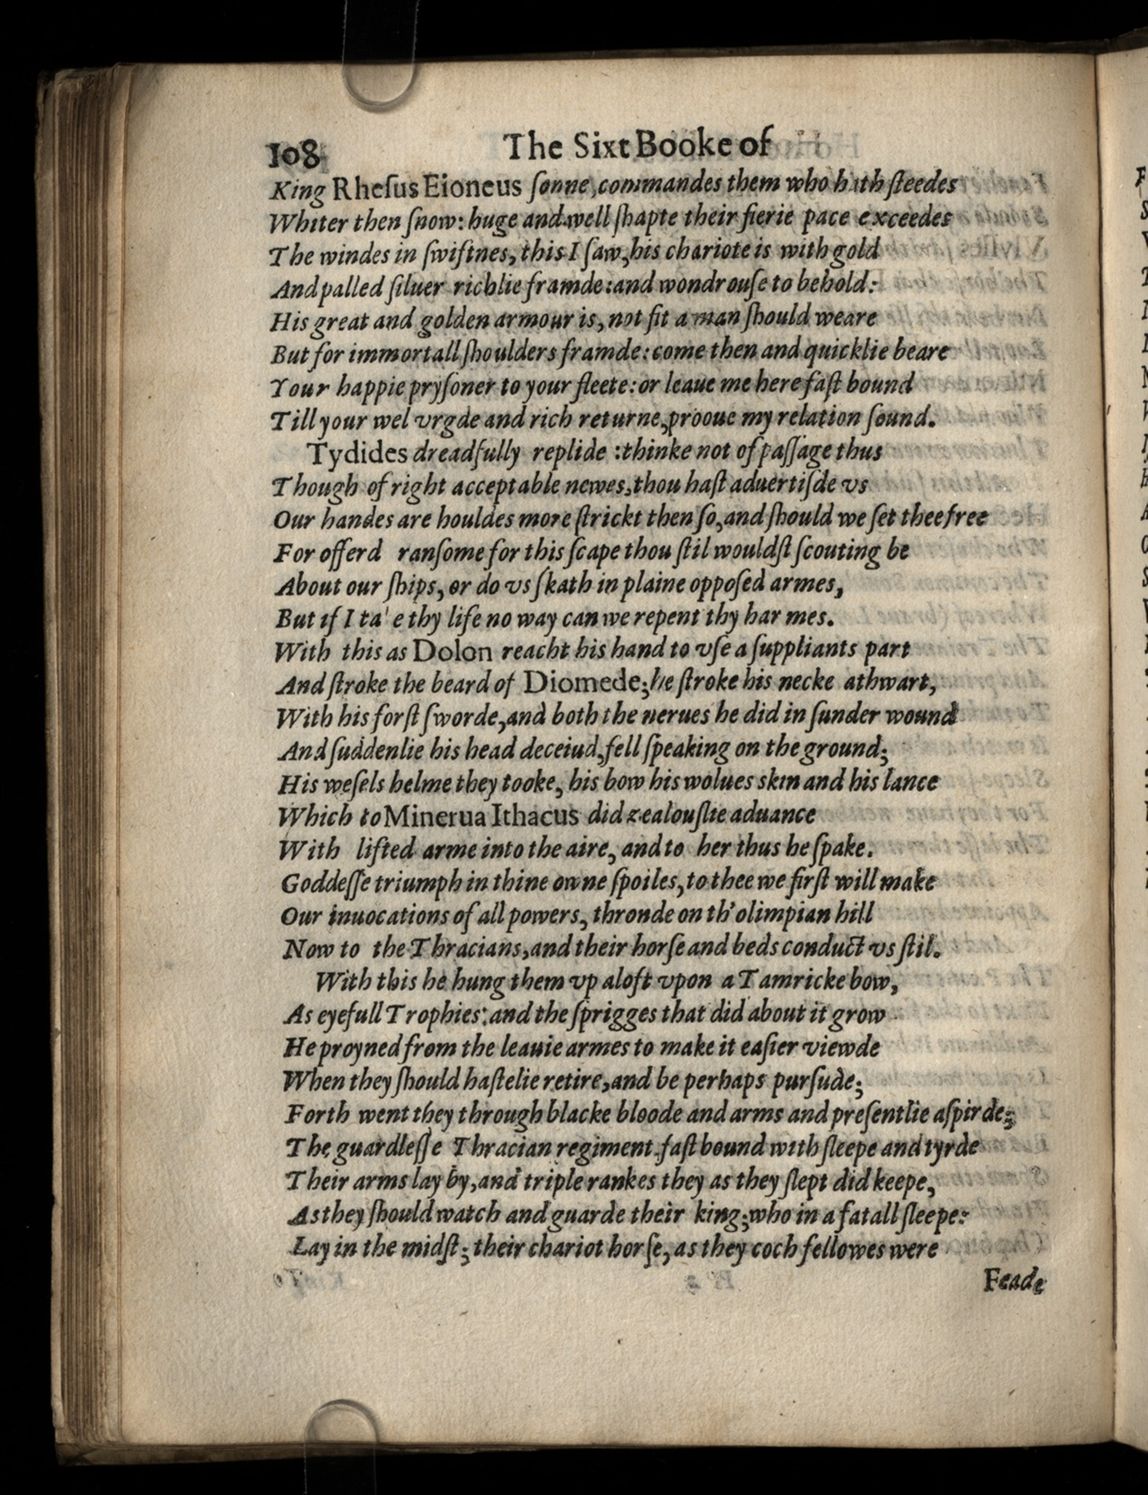 108 The Sixt Booke of
King Rhesus Eioneus sonne, commandes them who hath steedes
Whiter then snow: huge and well shapte their fierie pace exceedes
The windes in swiftnes, this I saw, his chariote is with gold
And palled siluer richlie framde: and wondrouse to behold:
His great and golden armour is, not fit a man should weare
But for immortall shoulders framde: come then and quicklie beare
Your happie prysoner to your fleete: or leaue me here fast bound
Till your wel vrgde and rich returne, prooue my relation sound.
Tydides dreadfully replide : thinke not of passage thus
Though of right acceptable newes, thou hast aduertisde vs
Our handes are houldes more strickt then so, and should we set thee free
For offerd ransome for this scape thou stil wouldst scouting be
About our ships, or do vs skath in plaine opposed armes,
But if I ta' e thy life no way can we repent thy harmes.
With this as Dolon reacht his hand to vse a suppliants part
And stroke the beard of Diomede; he stroke his necke athwart,
With his forst sworde, and both the nerues he did in sunder wound
And suddenlie his head deceiud, fell speaking on the ground;
His wesels helme they tooke, his bow his wolues skin and his lance
Which to Minerua Ithacus did zealouslie aduance
With lifted arme into the aire, and to her thus he spake.
Goddesse triumph in thine owne spoiles, to thee we first will make
Our inuocations of all powers, thronde on th'olimpian hill
Now to the Thracians, and their horse and beds conduct vs stil.
With this he hung them vp aloft vpon a Tamricke bow,
As eyefull Trophies: and the sprigges that did about it grow
He proyned from the leauie armes to make it easier viewde
When they should hastelie retire, and be perhaps pursude;
Forth went they through blacke bloode and arms and presentlie aspirde;
The guardlesse Thracian regiment fast bound with sleepe and tyrde
Their arms lay by, and triple rankes they as they slept did keepe,
As they should watch and guarde their king; who in a fatall sleepe:
Lay in the midst; their chariot horse, as they coch fellowes were
Feade